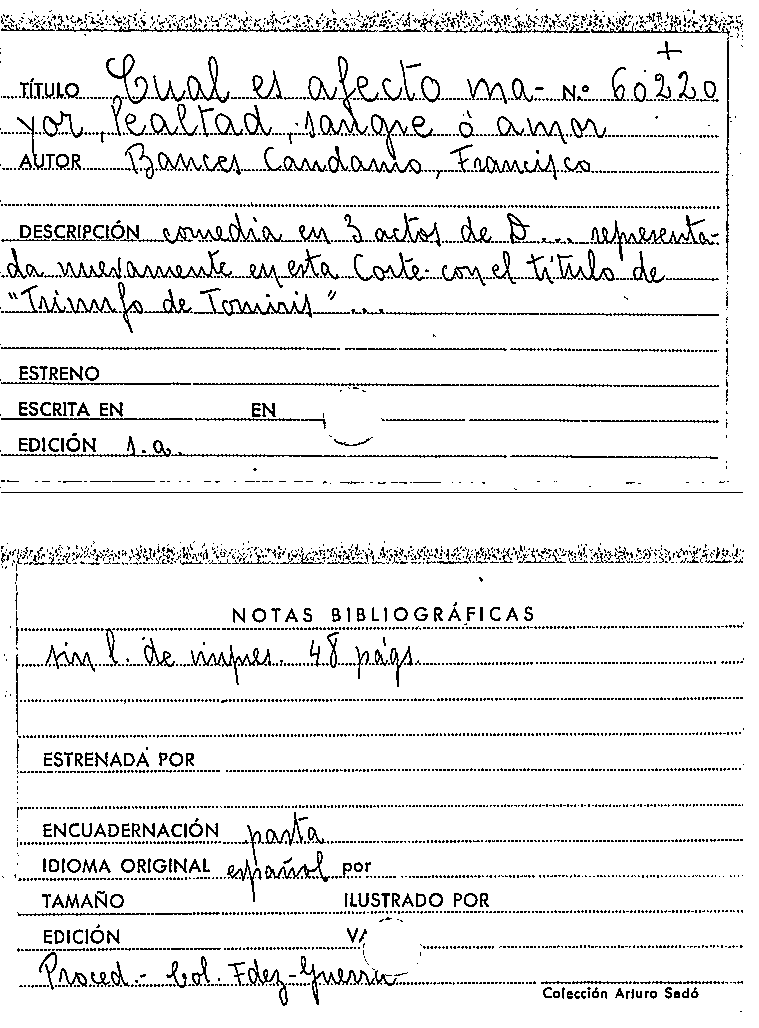 +
TÍTULO Cual es afecto ma- N.º 60220
yor, lealtad, sangre ó amor
AUTOR Bances Candamo, Francisco
DESCRIPCIÓN comedia en 3 actos de D... representa-
da nuevamente en esta Corte con el título de
"Triunfo de Tomiris"...
ESTRENO
ESCRITA EN EN
EDICIÓN s.a.
NOTAS BIBLIOGRÁFICAS
sin l. de impres. 48 págs.
ESTRENADA POR
ENCUADERNACIÓN pasta
IDIOMA ORIGINAL español por
TAMAÑO ILUSTRADO POR
EDICIÓN
Proced.- Col. Fdez-Guerra
Colección Arturo Sedó